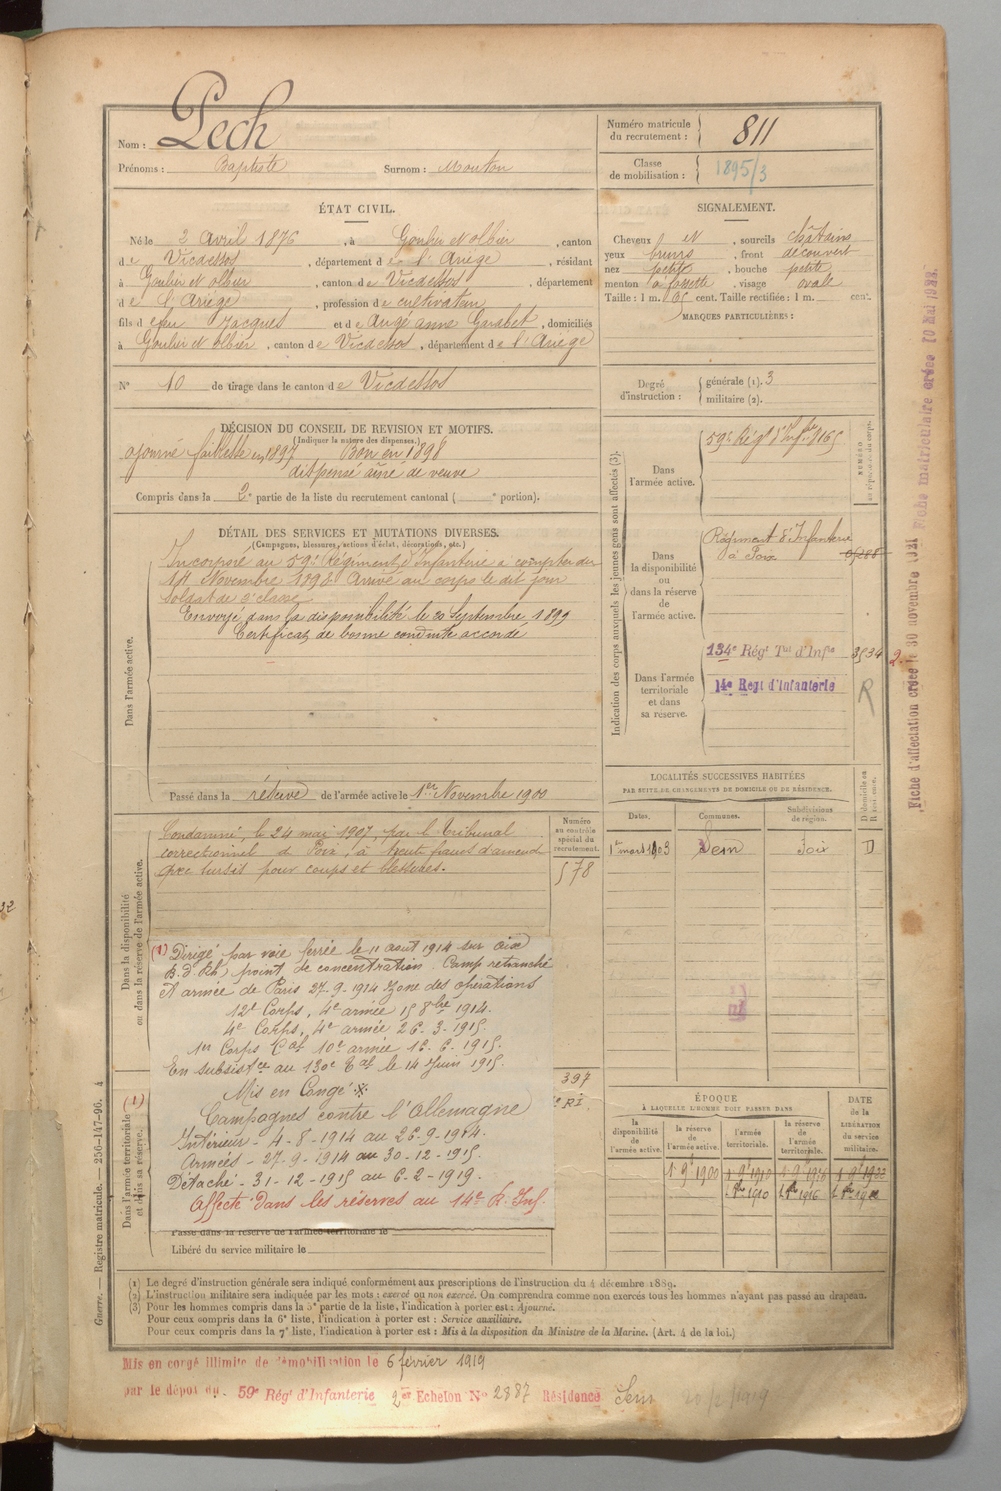 Nom : Pech
Prénoms : Baptiste Surnom : Mouton
Numéro matricule du recrutement : 811
Classe de mobilisation : 1895/3
ÉTAT CIVIL.
Né le 2 Avril 1876, à Goulier et olbier, canton
de Vicdessos, département de l'Ariège, résidant
à Goulier et olbier, canton de Vicdessos, département
de l'Ariège, profession de cultivateur
fils de feu Jacques et de Augé anne Garabet, domiciliés
à Goulier et olbier, canton de Vicdessos, département de l'Ariège
N° 10 de tirage dans le canton de Vicdessos
SIGNALEMENT.
Cheveux et, sourcils châtains
yeux bruns, front découvert
nez petit, bouche petite
menton à fossette, visage ovale
Taille : 1 m. 65 cent. Taille rectifiée : 1 m. cent.
MARQUES PARTICULIÈRES :
Degré d'instruction :
générale (1). 3
militaire (2).
DÉCISION DU CONSEIL DE REVISION ET MOTIFS.
(Indiquer la nature des dispenses.)
ajourné faiblesse en 1897 Bon en 1898
dispensé aîné de veuve
Compris dans la 2e partie de la liste du recrutement cantonal ( e portion).
DÉTAIL DES SERVICES ET MUTATIONS DIVERSES.
(Campagnes, blessures, actions d'éclat, décorations, etc.)
Dans l'armée active.
Incorporé au 59e Régiment d'Infanterie à compter du
14 Novembre 1898 Arrivé au corps le dit jour
soldat de 2e classe
Envoyé dans la disponibilité le 20 Septembre 1899
Certificat de bonne conduite accordé
Passé dans la réserve de l'armée active le 1er Novembre 1900
Indication des corps auxquels les jeunes gens sont affectés (3).
NUMÉRO au répertoire du corps.
Dans l'armée active.
59e Régt d'Infrie 9165
Dans la disponibilité ou dans la réserve de l'armée active.
Régiment d'Infanterie
à Foix
Dans l'armée territoriale et dans sa réserve.
134e Régt Tal d'Infie 3534
14e Regt d'Infanterie R
2.
LOCALITÉS SUCCESSIVES HABITÉES
PAR SUITE DE CHANGEMENTS DE DOMICILE OU DE RÉSIDENCE.
Dates. Communes. Subdivisions de région. D. domicile ou R. résidence.
1er mars 1903 Sem Foix D
Dans la disponibilité ou dans la réserve de l'armée active.
Condamné, le 24 mai 1907, par le Tribunal
correctionnel de Foix, à trente francs d'amende
avec sursis pour coups et blessures.
Numéro au contrôle spécial du recrutement.
578
(1) Dirigé par voie ferrée le 11 aout 1914 sur aix
B. d. Rh, point de concentration. Camp retranché
et armée de Paris 27-9-1914 Zone des opérations
12e Corps, 4e armée 15 8bre 1914.
4e Corps, 4e armée 26-3-1915.
1er Corps Cal 10e armée 16-6-1915.
En subsistce au 130e Tal le 14 Juin 1915.
Mis en Congé
Campagnes contre l'Allemagne
Intérieur - 4-8-1914 au 26-9-1914.
Armées - 27-9-1914 au 30-12-1915.
Détaché - 31-12-1915 au 6-2-1919.
Affecté dans les réserves au 14e R. Inf.
397
RI.
(1)
Dans l'armée territoriale et dans sa réserve.
Passé dans la réserve de l'armée territoriale le
Libéré du service militaire le
ÉPOQUE
À LAQUELLE L'HOMME DOIT PASSER DANS
la disponibilité de l'armée active. la réserve de l'armée active. l'armée territoriale. la réserve de l'armée territoriale.
DATE de la LIBÉRATION du service militaire.
1 9e 1900 1 9e 1910 1 9e 1916 1 9e 1922
1910 1916
(1) Le degré d'instruction générale sera indiqué conformément aux prescriptions de l'instruction du 4 décembre 1889.
(2) L'instruction militaire sera indiquée par les mots : exercé ou non exercé. On comprendra comme non exercés tous les hommes n'ayant pas passé au drapeau.
(3) Pour les hommes compris dans la 5e partie de la liste, l'indication à porter est : Ajourné.
Pour ceux compris dans la 6e liste, l'indication à porter est : Service auxiliaire.
Pour ceux compris dans la 7e liste, l'indication à porter est : Mis à la disposition du Ministre de la Marine. (Art. 4 de la loi.)
Mis en congé illimité de démobilisation le 6 février 1919
par le dépôt du 59e Régt d'Infanterie 2er Echelon No 2887 Résidence Sem
Guerre. — Registre matricule. — 256-147-96. 4
Fiche d'affectation créée le 30 novembre 1921 Fiche matriculaire créée 10 Mai 1922.